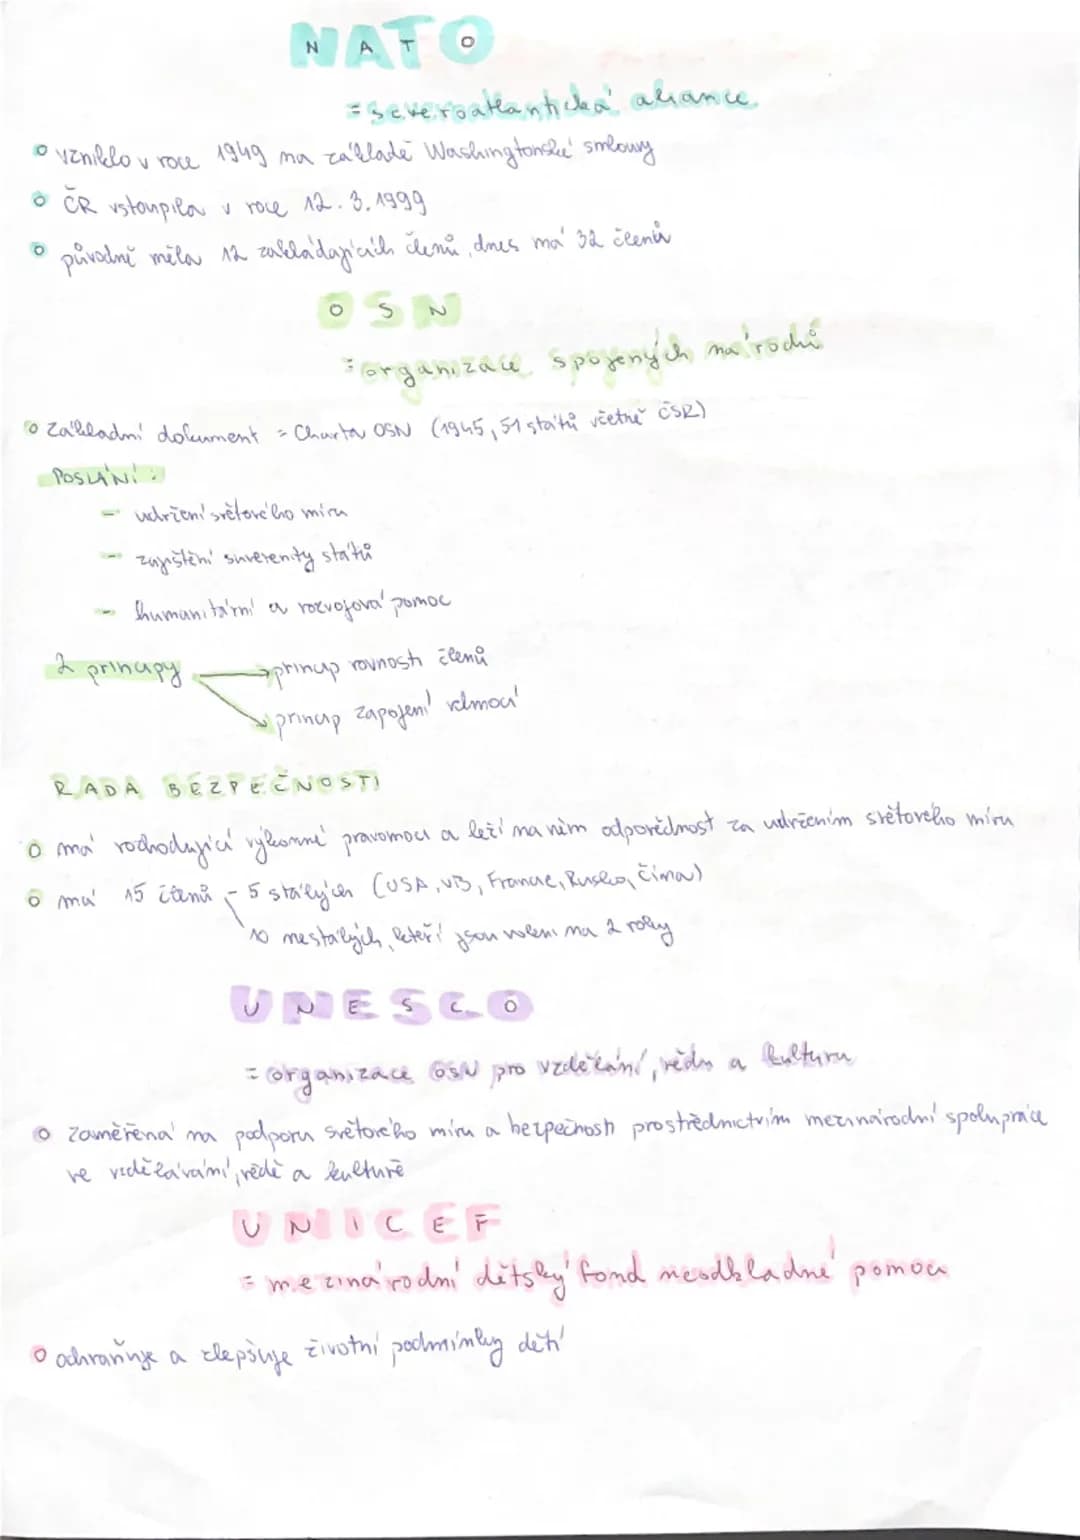 NATO
= severoatlantická aliance
vzniklo v roce 1949 na základě Washingtonské smlouvy
ČR vstoupila v roce 12.3.1999
původně měla 12 zakládajících členů, dnes má 32 členů
OSN
= organizace spojených národů
Základní dokument = Charta OSN (1945, 51 států včetně ČSR)
POSLÁNÍ:
- udržení světového míru
- zajištění suverenity států
- humanitární a rozvojová pomoc
2 principy → princip rovnosti členů
princip zapojení velmocí
RADA BEZPEČNOSTI
má rozhodující výkonné pravomoci a leží na něm odpovědnost za udržením světového míru
má 15 členů - 5 stálých (USA, VB, Francie, Rusko, Čína)
10 nestálých, kteří jsou voleni na 2 roky
UNESCO
= organizace OSN pro vzdělání, vědu a kulturu
zaměřená na podporu světového míru a bezpečnosti prostřednictvím mezinárodní spolupráce
ve vzdělávání, vědě a kultuře
UNICEF
= mezinárodní dětský fond neodkladné pomoci
ochraňuje a zlepšuje životní podmínky dětí